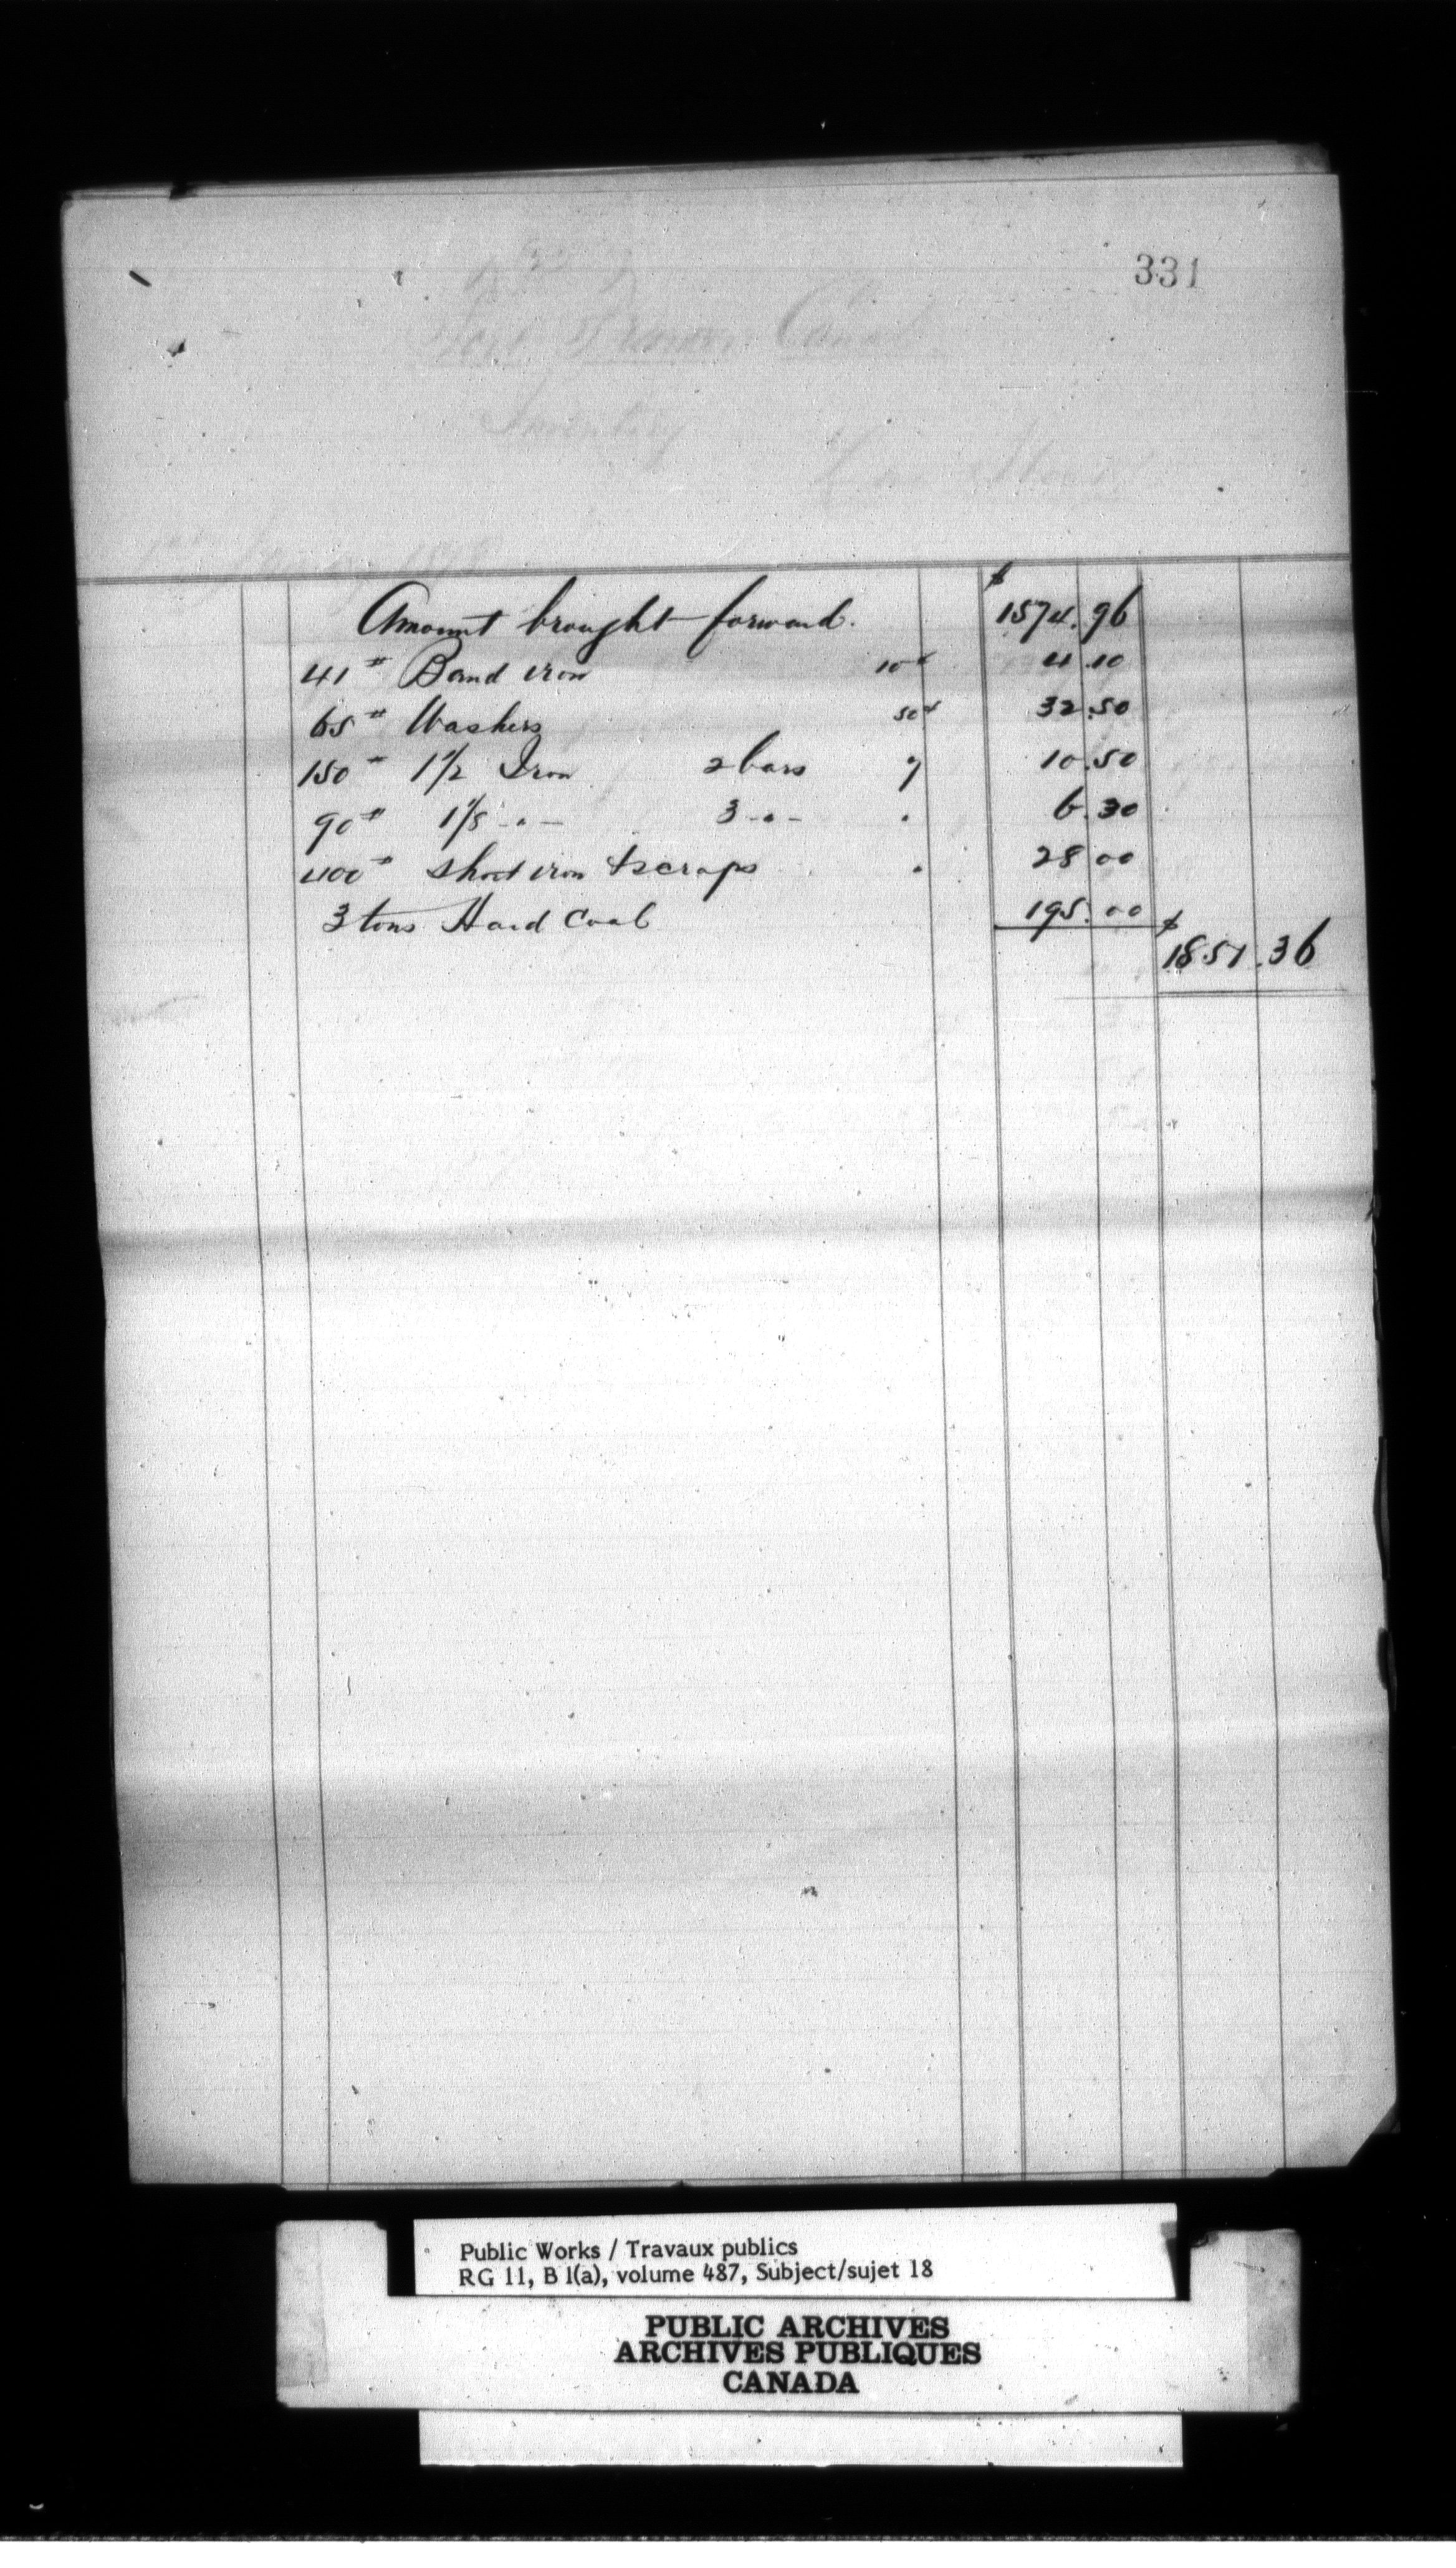 331
Amount brought forward. $ 1574.96
41 # Band iron 10¢ 4.10
65 # Washers 50¢ 32.50
150 # 1 1/2 Iron 2 bars 7 10.50
90 # 1 1/8 -"- 3 -"- " 6.30
400 # short iron & scraps " 28 00
3 tons Hard Coal 195.00
$ 1851.36
Public Works / Travaux publics
RG 11, B 1(a), volume 487, Subject/sujet 18
PUBLIC ARCHIVES
ARCHIVES PUBLIQUES
CANADA